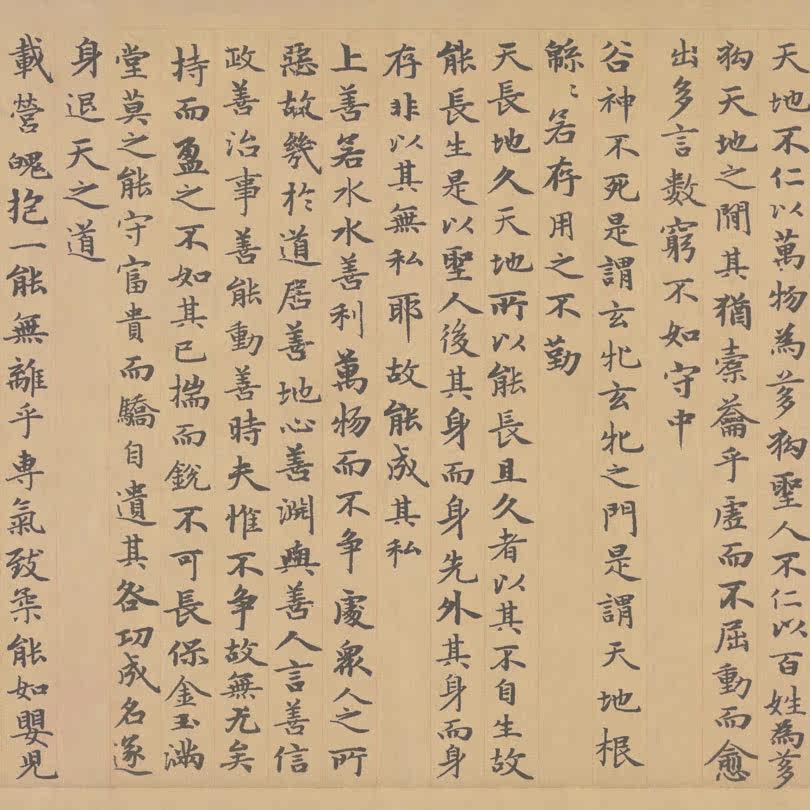 天地不仁以萬物為芻狗聖人不仁以百姓為芻
狗天地之間其猶橐籥乎虛而不屈動而愈
出多言數窮不如守中
谷神不死是謂玄牝玄牝之門是謂天地根
綿〻若存用之不勤
天長地久天地所以能長且久者以其不自生故
能長生是以聖人後其身而身先外其身而身
存非以其無私耶故能成其私
上善若水水善利萬物而不爭處衆人之所
惡故幾於道居善地心善淵與善人言善信
政善治事善能動善時夫惟不爭故無尤矣
持而盈之不如其已揣而銳不可長保金玉滿
堂莫之能守富貴而驕自遺其咎功成名遂
身退天之道
載營魄抱一能無離乎專氣致柔能如嬰兒